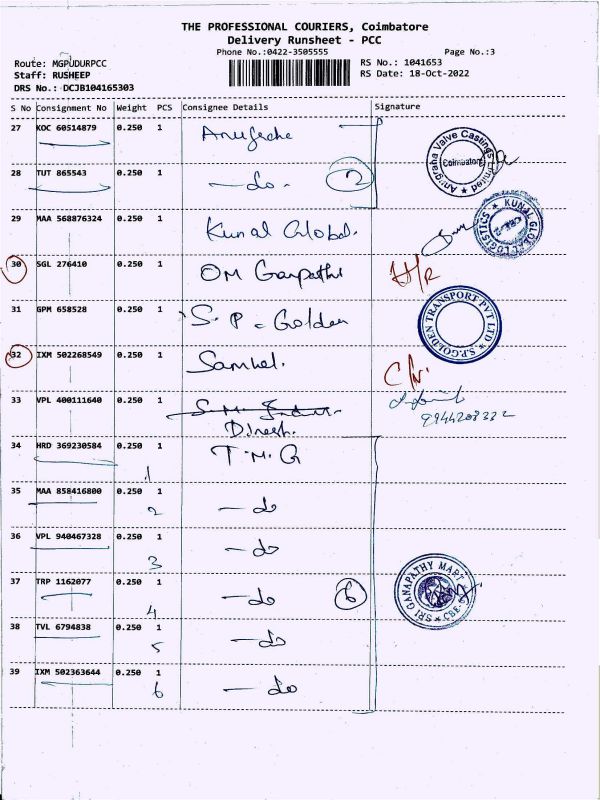 THE PROFESSIONAL COURIERS, Coimbatore
Delivery Runsheet - PCC
Phone No.:0422-3505555 Page No.:3
Route: MGPUDURPCC RS No.: 1041653
Staff: RUSHEEP RS Date: 18-Oct-2022
DRS No.: DCJB104165303
S No Consignment No Weight PCS Consignee Details Signature
27 KOC 60514879 0.250 1
Anugraha Valve Castings Limited
Coimbatore
28 TUT 865543 0.250 1 — do - 2
29 MAA 568876324 0.250 1 Kunal Global.
KUNAL GLOBAL LOGISTICS
30 SGL 276410 0.250 1 OM Ganpathi H/R
31 GPM 658528 0.250 1 S. P - Golden
S.P.GOLDEN TRANSPORT PVT LTD
32 IXM 502268549 0.250 1 C/N.
33 VPL 400111640 0.250 1
Dinesh.
34 HRD 369230584 0.250 1 T. M. G
1
35 MAA 858416800 0.250 1 — do
2
36 VPL 940467328 0.250 1 — do
3
37 TRP 1162077 0.250 1 — do 6
SRI GANAPATHY MART
CBE
4
38 TVL 6794838 0.250 1 — do
5
39 IXM 502363644 0.250 1 — do
6